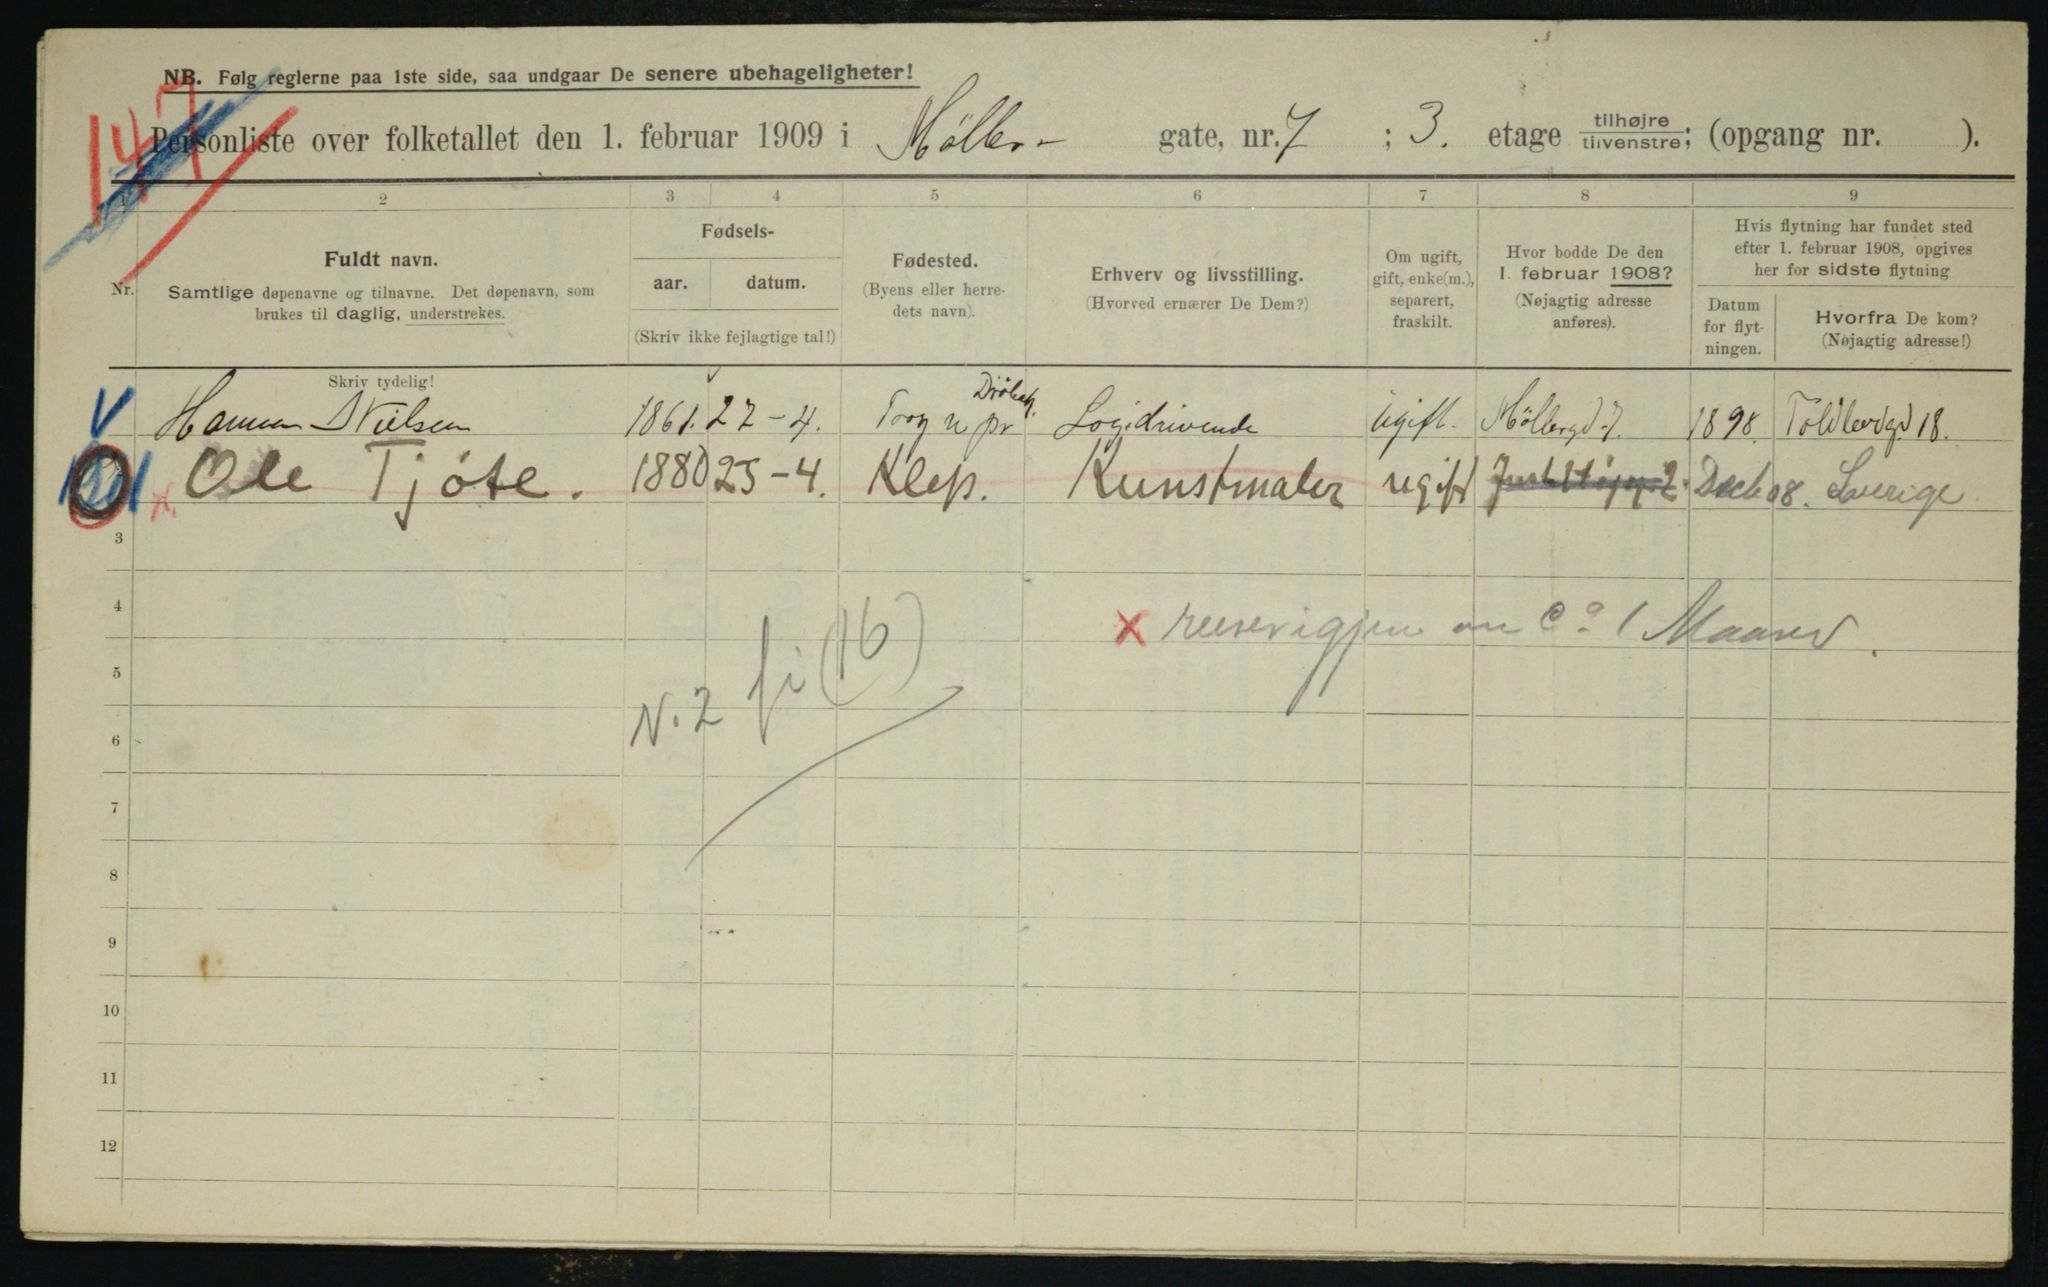 NB. Følg reglerne paa 1ste side, saa undgaar De senere ubehageligheter!
147
Personliste over folketallet den 1. februar 1909 i Möller- gate, nr. 7 ; 3. etage tilhøjre tilvenstre; (opgang nr. ).
1 2 3 4 5 6 7 8 9
Nr.
Fuldt navn.
Samtlige døpenavne og tilnavne. Det døpenavn, som
brukes til daglig, understrekes.
Skriv tydelig!
Fødsels-
aar. datum.
(Skriv ikke fejlagtige tal!)
Fødested.
(Byens eller herre-
dets navn).
Erhverv og livsstilling.
(Hvorved ernærer De Dem?)
Om ugift,
gift, enke(m.),
separert,
fraskilt.
Hvor bodde De den
1. februar 1908?
(Nøjagtig adresse
anføres).
Hvis flytning har fundet sted
efter 1. februar 1908, opgives
her for sidste flytning
Datum
for flyt-
ningen.
Hvorfra De kom?
(Nøjagtig adresse!)
V Nielsen 1861. 27-4. Dröbak. Logidrivende ugift. Möllergd. 7. 1898. Toldbodgd. 18.
x. Ole Tjöte. 1880 25-4. Klep. Kunstmaler ugift Decb 08. Sverige
3
4
x om Ca 1 Maaned.
5
N. 2 fi (16)
6
7
8
9
10
11
12